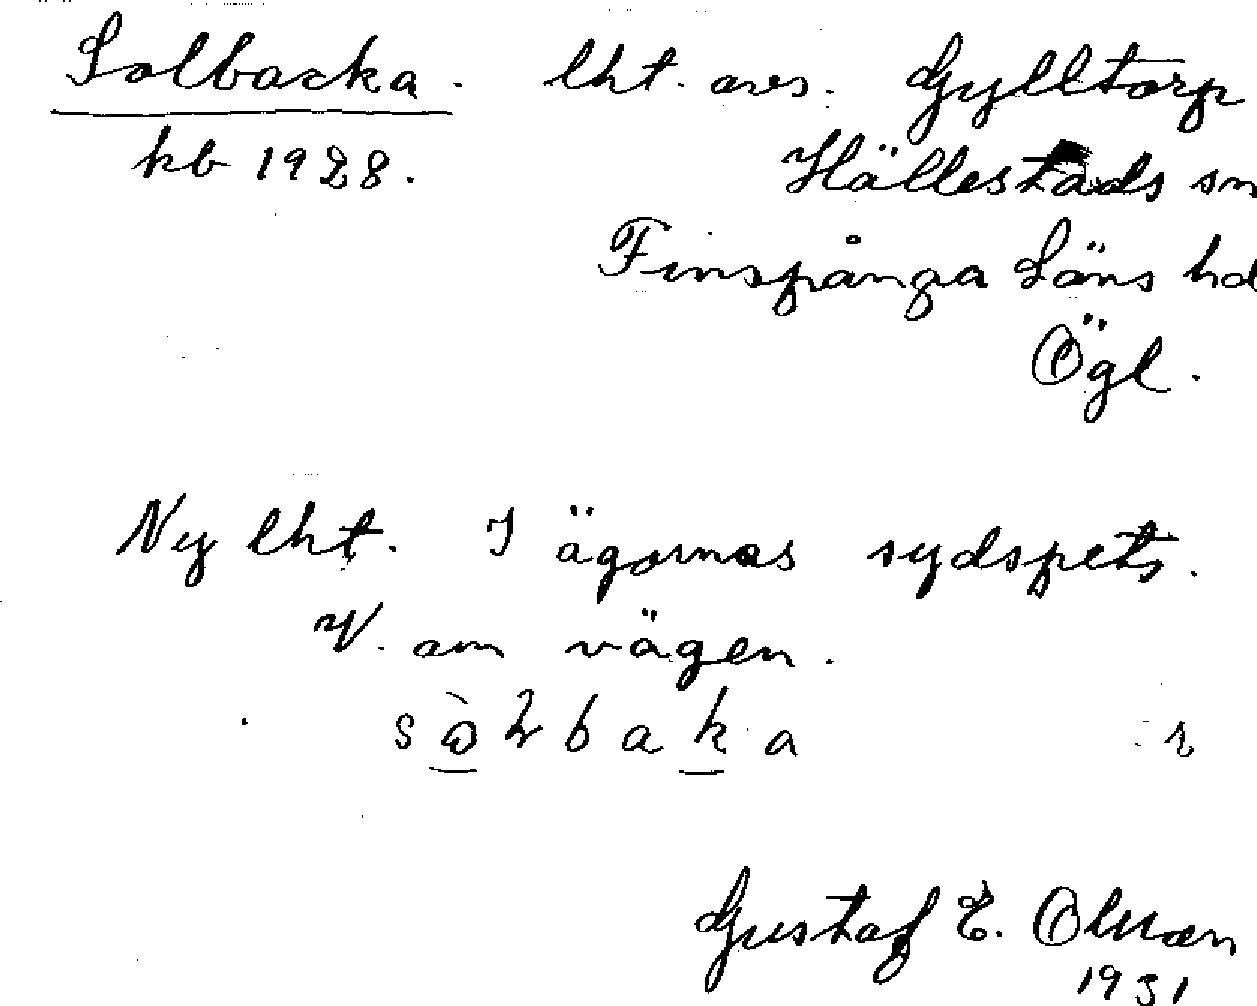 Solbacka. lht. avs. Gylltorp
kb 1928. Hällestads sn
Finspånga Läns hd
Ögl.
Ny lht. I ägornas sydspets.
V. om vägen.
Gustaf E. Olsson
1931